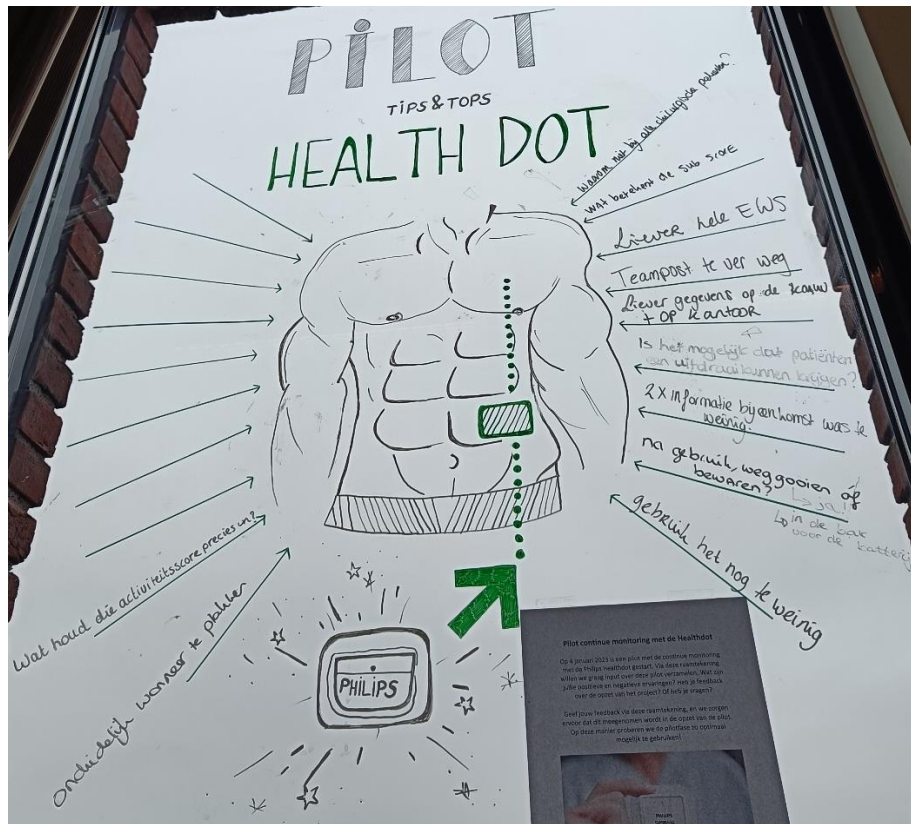 PiLOT
TiPS & TOPS
HEALTH DOT
waarom niet bij alle chirurgische patienten?
WAt betekent de SUb SCORE
Liever hele EWS
Teampost te ver weg
Liever gegevens op de
+ OP kantoor
Is het mogelijk dat patiënten
een uitdraai kunnen krijgen?
2 x informatie bijeenkomst was te
weinig
na gebruik, weggooien óf
bewaren?
↳ ja!!
↳ in de bak
voor de batterij
gebruik het nog te weinig
Wat houd die activiteitsscore precies in?
onduidelijk wanneer te plakken
PHILIPS
Pilot continue monitoring met de Healthdot
Op 4 januari 2023 is een pilot met de continue monitoring
met de Philips Healthdot gestart. Via deze raamtekening
willen we graag input over deze pilot verzamelen. Wat zijn
jullie positieve en negatieve ervaringen? Heb je feedback
over de opzet van het project? Of heb je vragen?
Geef jouw feedback via deze raamtekening, en we zorgen
ervoor dat dit meegenomen wordt in de opzet van de pilot.
Op deze manier proberen we de pilotfase zo optimaal
mogelijk te gebruiken!
PHILIPS